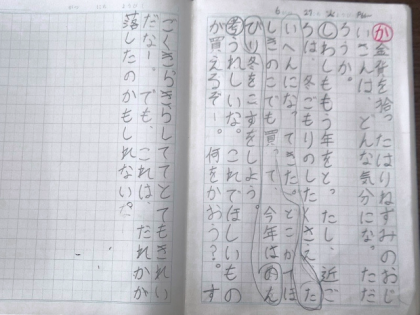 6 27 火
か 金貨を拾ったはりねずみのおじ
いさんは、どんな気分になっただ
ろうか。
しわしももう年をとったし、近ご
ろは、冬ごもりのしたくさえた
いへんになってきた。どこかでほ
しきのこでも買って、今年はのん
びり冬をこすをしよう。
考うれしいな。これでほしいもの
が買えるぞー。何をかおう?。す
ごくきらきらしててとてもきれい
だなー。でも、これは、だれかが
落したのかもしれない。